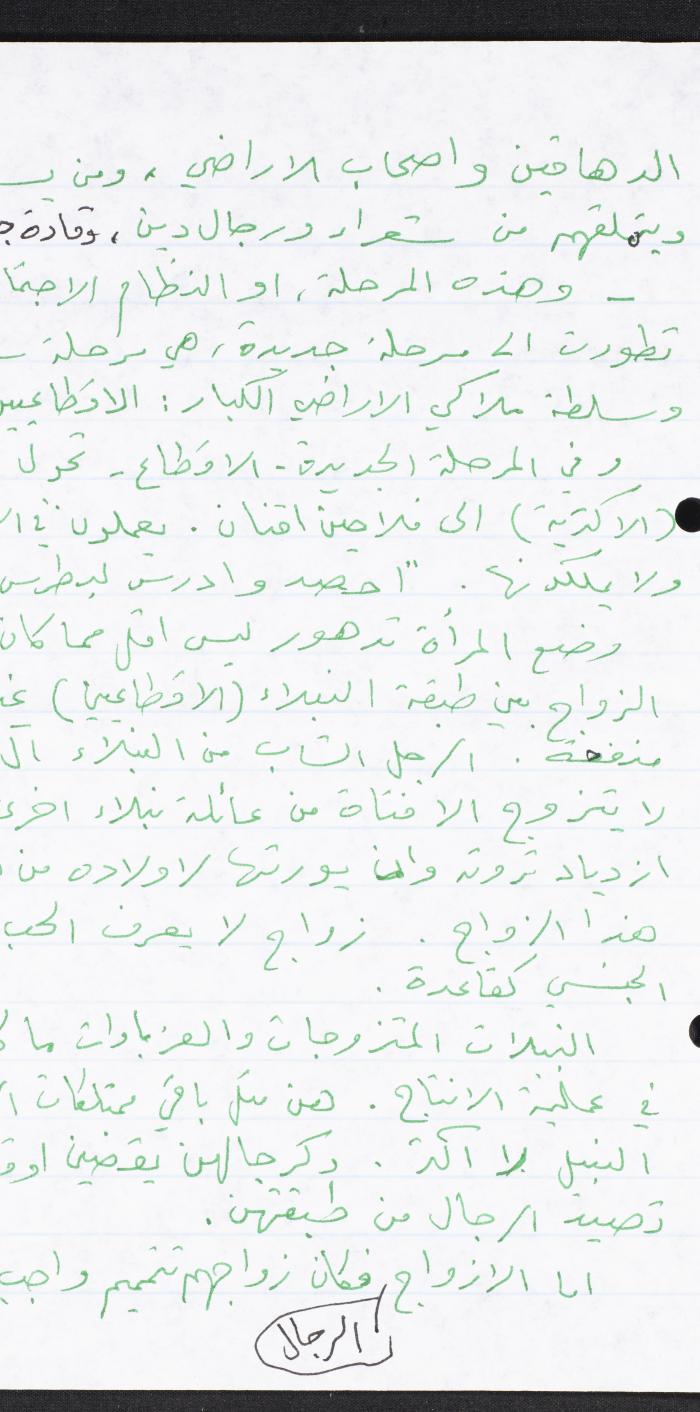 الدهاقين واصحاب الاراضي ، ومن
ويتملقهم من شعراء ورجال دين ، وقادة
– وهذه المرحلة ، او النظام
تطورت الى مرحلة جديدة ، هي مرحلة
وسلطة ملاكي الاراضي الكبار : الاقطاعيين
وفي المرحلة الجديدة - الاقطاع - تحول
(الاكثرية) الى فلاحين اقنان . يعملون في
ولا يملكونها . "احصد وادرس لبطرس
وضع المرأة تدهور ليس اقل مما كان
الزواج بين طبقة النبلاء (الاقطاعيين)
منفعة . الرجل الشاب من النبلاء
لا يتزوج الا فتاة من عائلة نبلاء اخرى
ازدياد ثروته وان يورثها لاولاده من
هذا الزواج . زواج لا يعرف الحب
الجنسي كقاعدة .
النبيلات المتزوجات والعزباوات
في عملية الانتاج . هن مثل باقي ممتلكات
النبيل لا اكثر . وكرجالهن يقضين
تصيد الرجال من طبقتهن .
اما الازواج فكان زواجهم تتميم واجب
الرجال